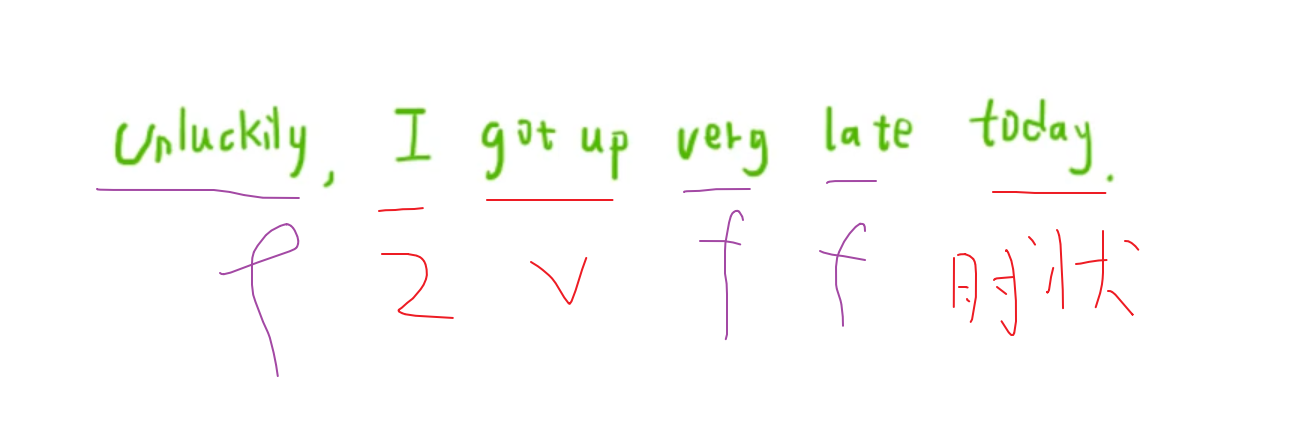 Unluckily, I got up very late today.
f Z V f f 时状